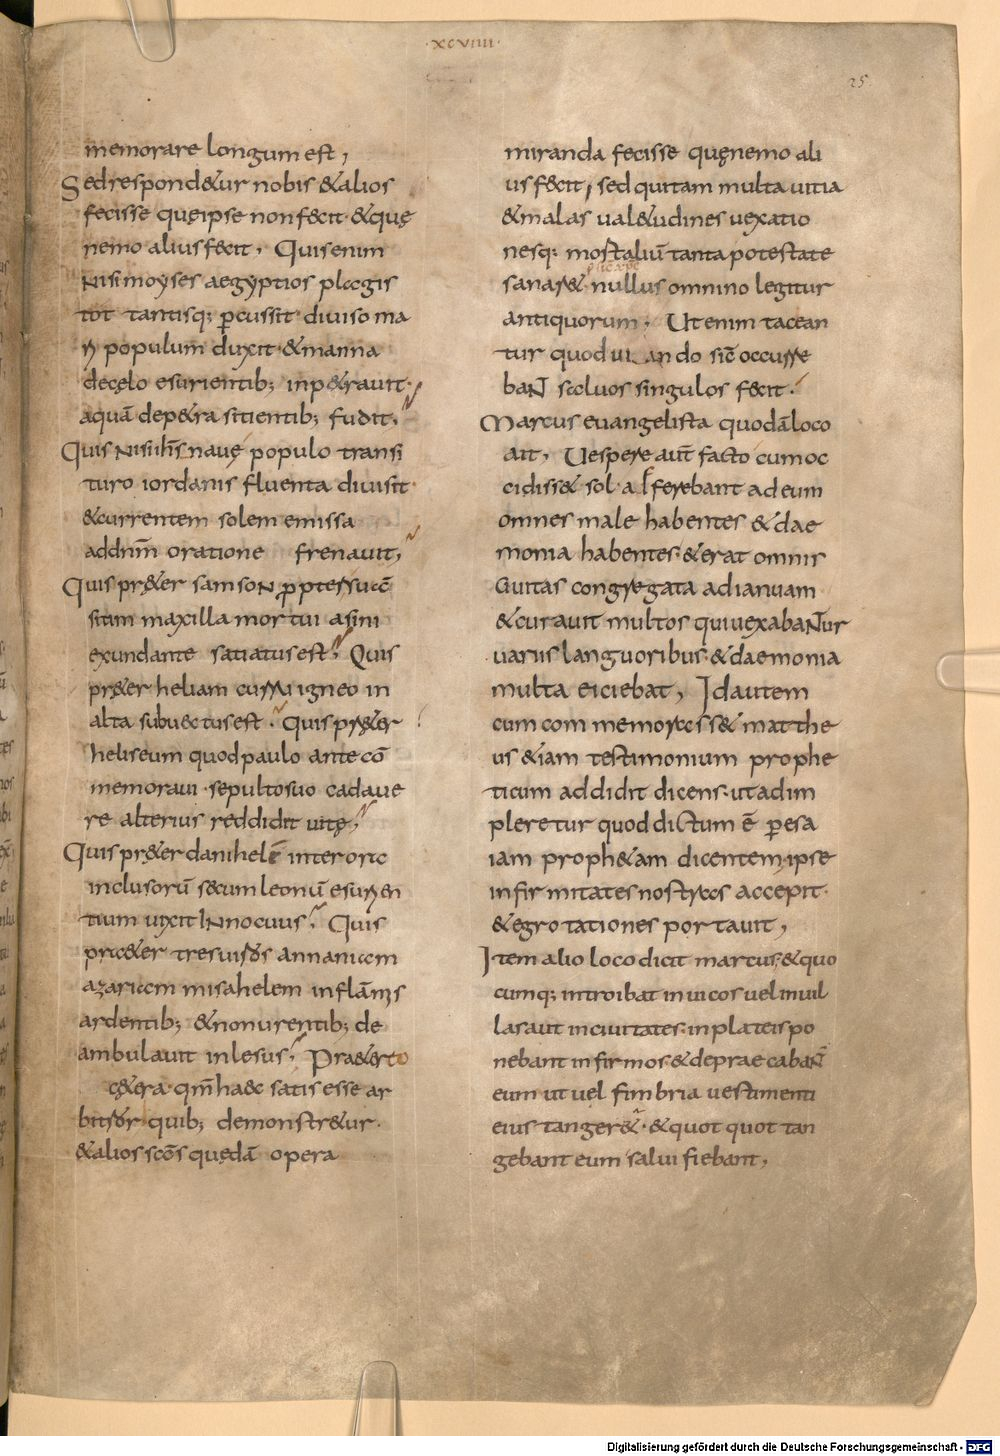 ·xcviiii·
25.
memorare longum est,
Sed respond&ur nobis &alios
fecisse quęipse non fecit· &quę
nemo alius fecit, Quis enim
Nisi moyses aegyptios plagis
tot tantisq; ꝑcussit· diuiso ma
ri populum duxit· &manna
decęlo esurientib; inp&rauit·
aquā dep&ra sitientib; fudit,
Quis nisi ih̄s naue populo transi
turo iordanis fluenta diuisit·
&currentem solem emissa
addnm̄ oratione frenauit,
Quis pr&er samson ꝓpter suā
sitim maxilla mortui asini
exundante satiatus est, Quis
pr&er heliam curru igneo in
alta subuectus est· Quis pr&er
heliseum quod paulo ante cō
memoraui· sepultosuo cadaue
re alterius reddidit uitę,
Quis pr&er danihelē inter ora
inclusorū secum leonū esurien
tium uixit Innocuus, Quis
pra&er tres uiros annaniam
azariam misahelem inflāmis
ardentib; &non urentib; de
ambulauit inlesus, Pra&erto
c&era· qm̄ haec satis esse ar
bitror quib; demonstr&ur·
&alios scōs quędā opera
miranda fecisse quęnemo ali
us fecit, sed qui tam multa uitia
&malas ual&udines uexatio
nesq; mortaliū tanta potestate
sanar& nullus omnino legitur
antiquorum, Ut enim tacean
tur quod iubendo sic̄ occurre
baNt saluos singulos fecit·
Marcus euangelista quodā loco
ait, Uespere aut̄ facto cum oc
cidiss& sol· afferebant ad eum
omnes male habentes & dae
monia habentes· &erat omnis
Ciuitas congregata ad ianuam
&curauit multos qui uexabaNtur
uariis languoribus· &daemonia
multa eiciebat, Id autem
cum com memorass& matthe
us &iam testimonium prophe
ticum addidit dicens· ut adim
pleretur quod dictum ē ꝑesa
iam proph&am dicentem· ipse
infirmitates nostras accepit·
&egrotationes portauit,
Item alio loco dicit marcus· &quo
cumq; introibat in uicos uel in uil
las aut in ciuitates· in plateis po
nebant infirmos &deprae cabaNt
eum ut uel fimbria uestimenti
eius tanger&· &quot quot tan
gebant eum salui fiebant,
Digitalisierung gefördert durch die Deutsche Forschungsgemeinschaft - DFG